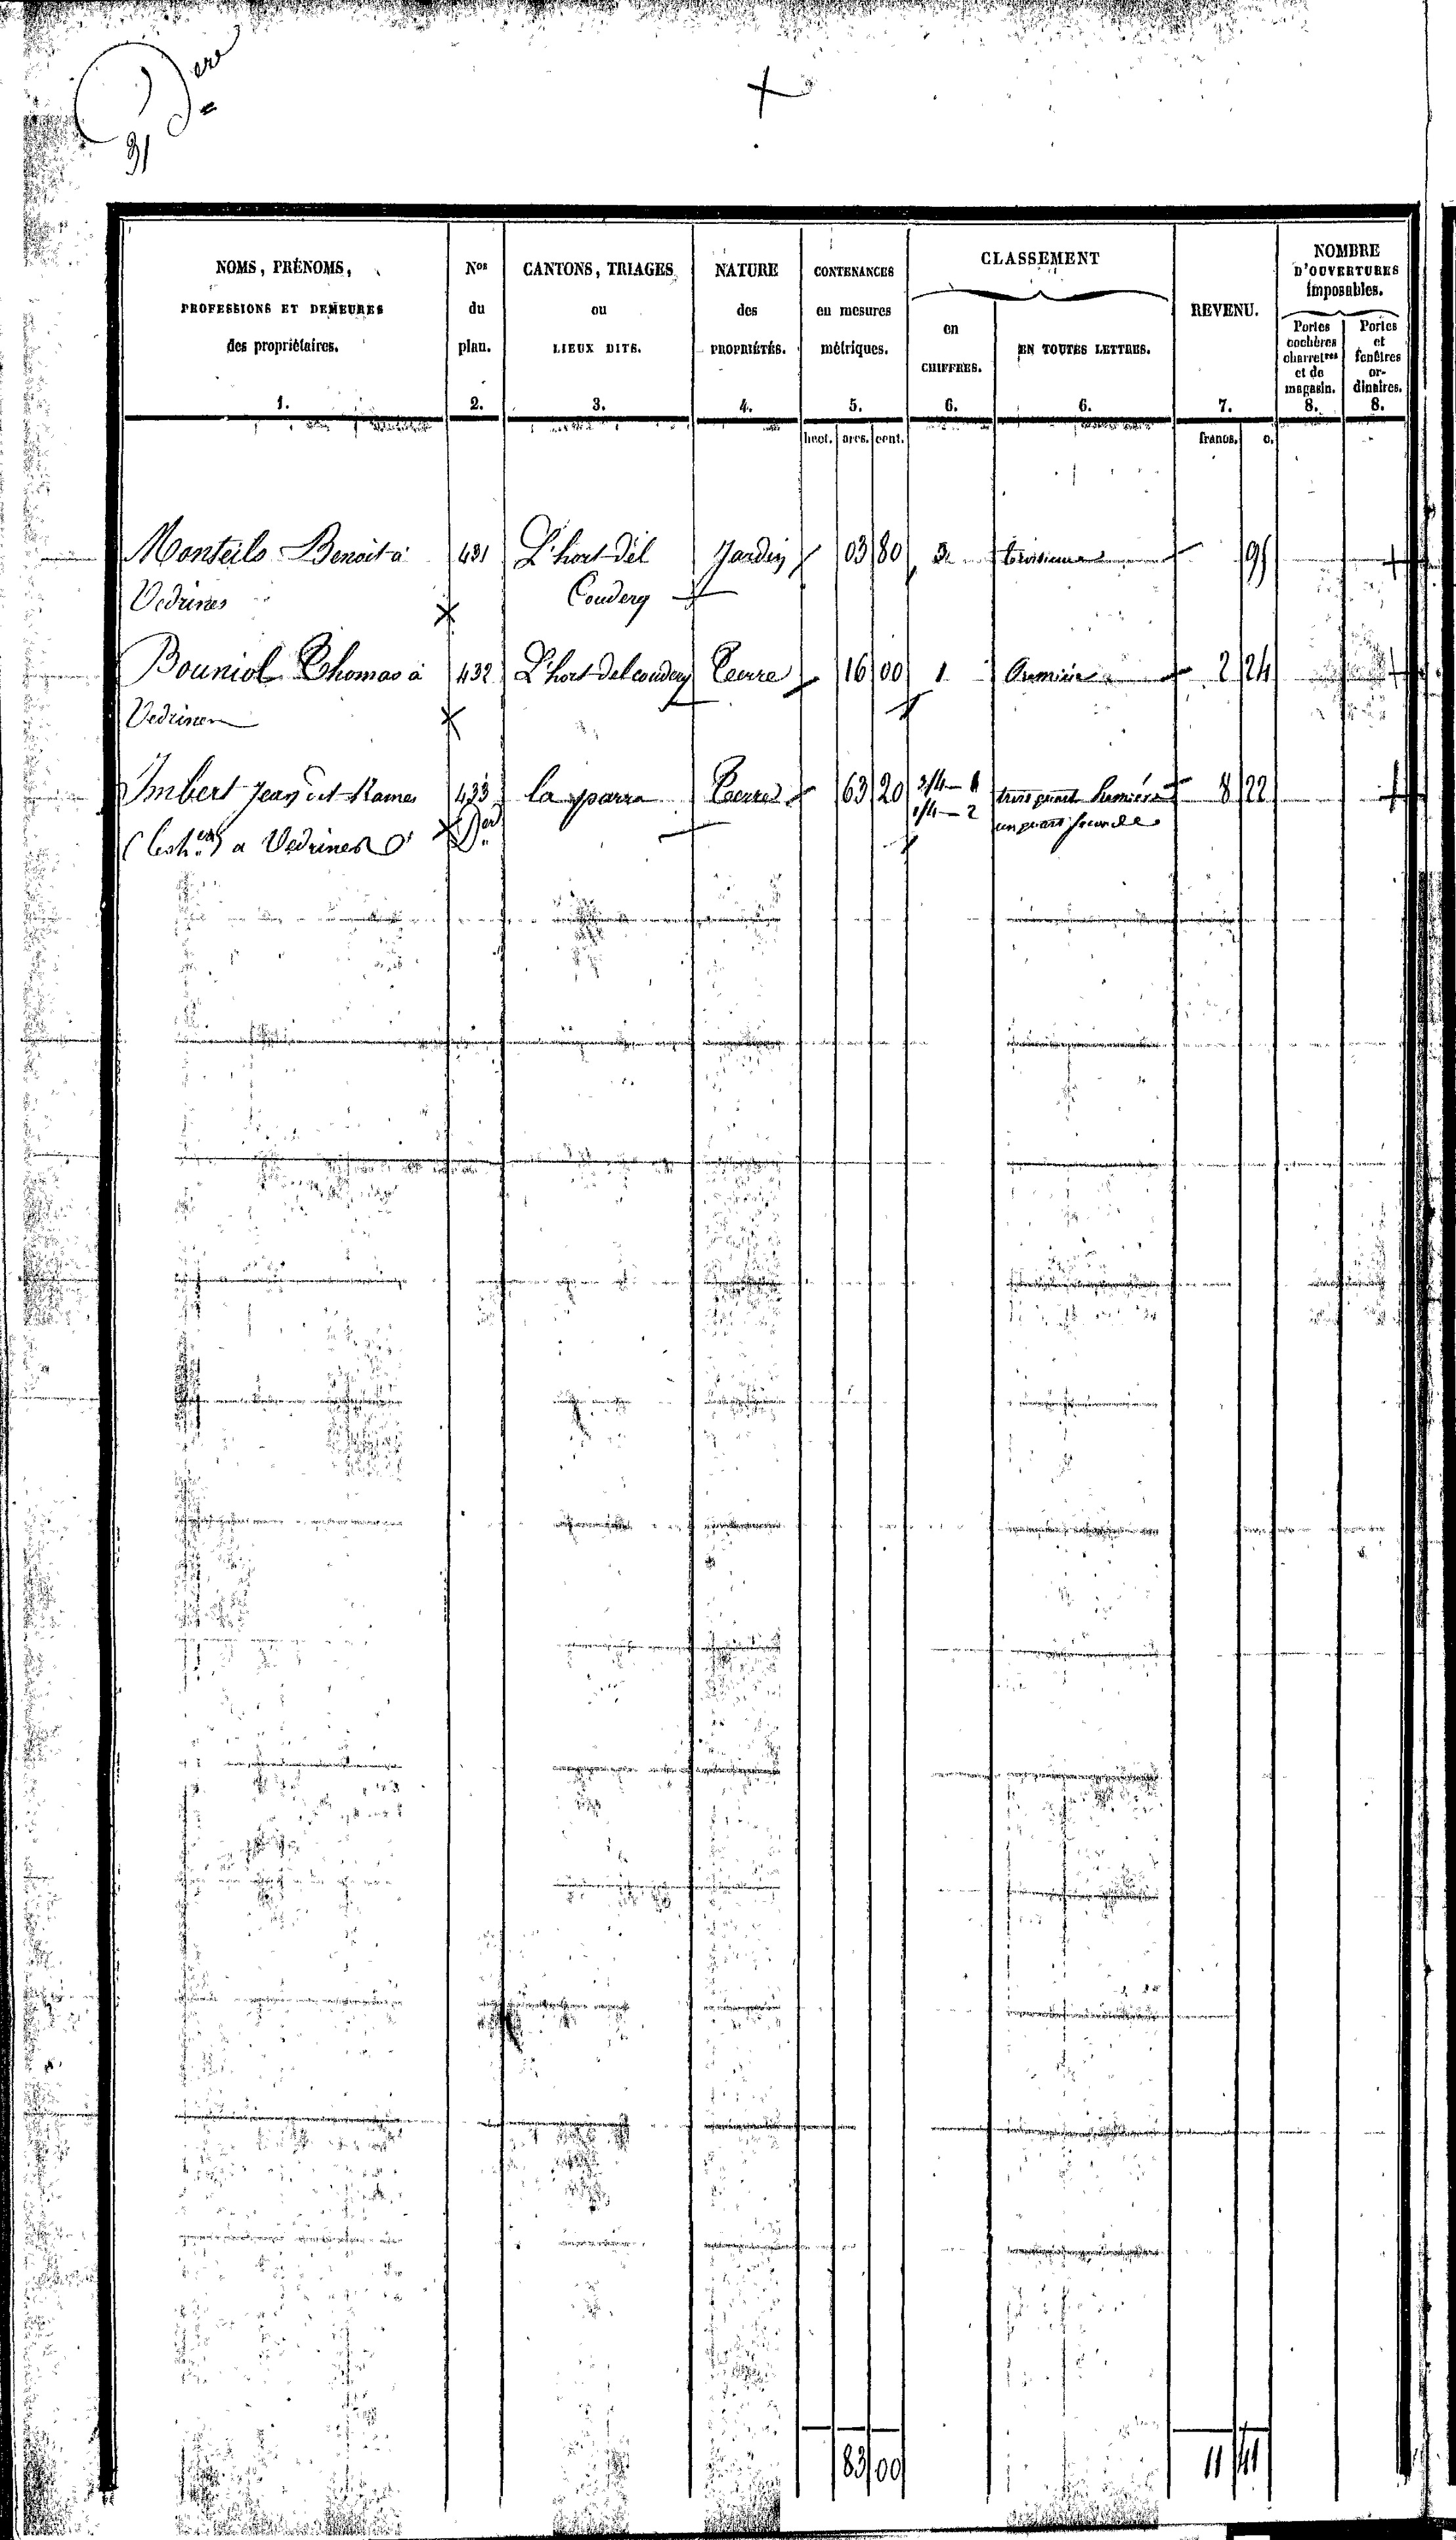 Dere
31
NOMS, PRÉNOMS,
PROFESSIONS ET DEMEURES
des propriétaires.
1.
Nos
du
plan.
2.
CANTONS, TRIAGES
ou
LIEUX DITS.
3.
NATURE
des
PROPRIÉTÉS.
4.
CONTENANCES
en mesures
métriques.
5.
CLASSEMENT
en
CHIFFRES.
6.
EN TOUTES LETTRES.
6.
REVENU.
7.
NOMBRE
D'OUVERTURES
imposables.
Portes
cochères
charretres
et de
magasin.
8.
Portes
et
fenêtres
or-
dinaires.
8.
hect. ares. cent. francs. c.
Monteils Benoit à 431 L'hort del Jardin 03 80 3 troisieme 95
Vedrines Couderq
Bouniol Thomas à 432 L'hort del couderq Terre 16 00 1 Premiere 2 24
Vedrines
Imbert Jean dit Rames 433 la parra Terre 63 20 3/4 - 1 trois quart Premiere 8 22
à Vedrines Der 1/4 - 2 un quart seconde
83 00 11 41